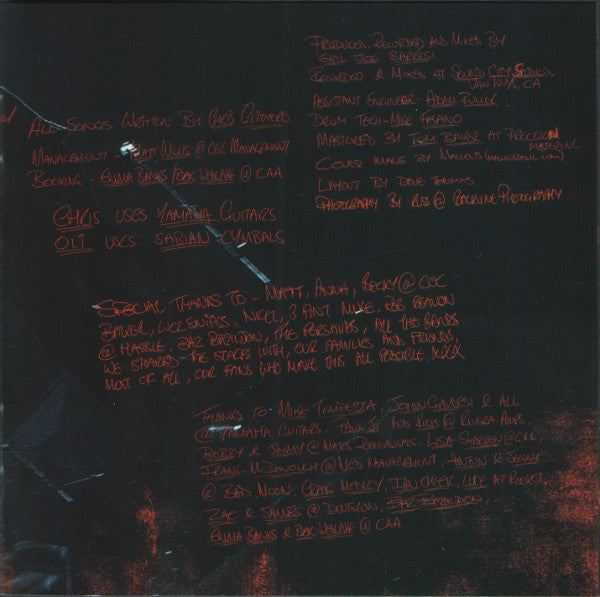 Produced, Recorded and Mixed by
Evil Joe Barresi
Recorded & Mixed at Sound City Studios,
Van Nuys, CA
Assistant Engineer - Adam Fuller
Drum Tech - Mike Fasano
Mastered by Tom Baker at Precision
Mastering
Cover Image by Malleus (malleusdelic.com)
Layout by Dave Thomas
Photography by Russ @ Backline Photography
All Songs Written by Chris
Management - Matt Willis @ CEC Management
Booking - Emma Banks / Bex @ CAA
Chris uses Yamaha Guitars
Oli uses Sabian Cymbals
Special Thanks to - Matt, Anna, Becky @ CEC
Baker, Nicel, 3 Pint Mike, Rob
@ Marble, The Persands, All the Bands
we shared the stage with, our families and friends,
most of all, our fans who make this all possible, XXXX
Thanks to Mike Tempesta, John & all
@ Yamaha Guitars, Paul Jr. and Rich @ Rivera Amps,
Bobby & Jimmy @ Lisa
Frank McDonough @ Neo Management,
@ Bad Moon, Craig Medley, Ian Cheek, Luke at Rocket,
Zac & James @ Division,
Emma Banks & Bex @ CAA